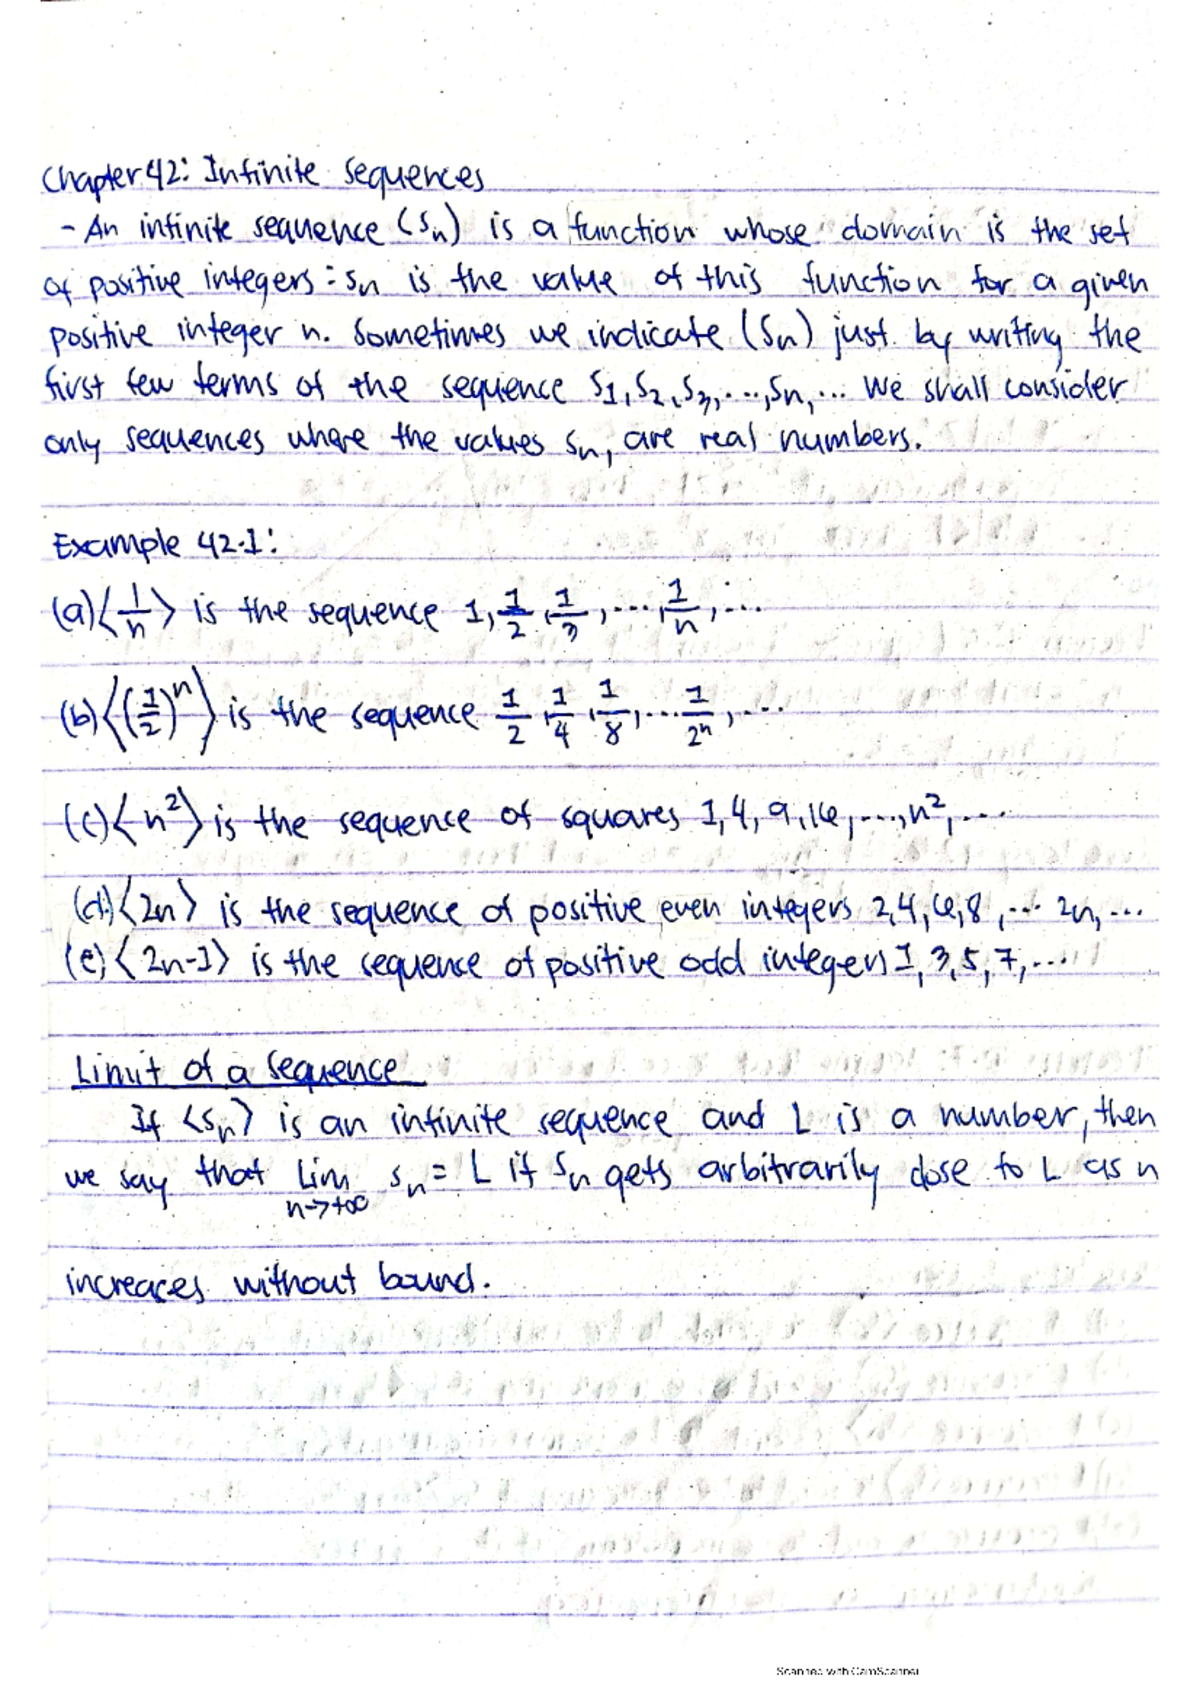 Chapter 42: Infinite sequences
- An infinite sequence (sn) is a function whose domain is the set
of positive integers: sn is the value of this function for a given
positive integer n. Sometimes we indicate (Sn) just by writing the
first few terms of the sequence S1, S2, S3, ..., Sn, ... We shall consider
only sequences where the values sn, are real numbers.
Example 42.1:
(a) ⟨1/n⟩ is the sequence 1, 1/2, 1/3, ..., 1/n, ...
(b) ⟨(1/2)^n⟩ is the sequence 1/2, 1/4, 1/8, ... 1/2^n, ...
(c) ⟨n²⟩ is the sequence of squares 1, 4, 9, 16, ..., n², ...
(d) ⟨2n⟩ is the sequence of positive even integers 2, 4, 6, 8, ... 2n, ...
(e) ⟨2n-1⟩ is the sequence of positive odd integers 1, 3, 5, 7, ...
Limit of a sequence
If ⟨sn⟩ is an infinite sequence and L is a number, then
we say that lim n→+∞ sn = L if sn gets arbitrarily close to L as n
increases without bound.
Scanned with CamScanner